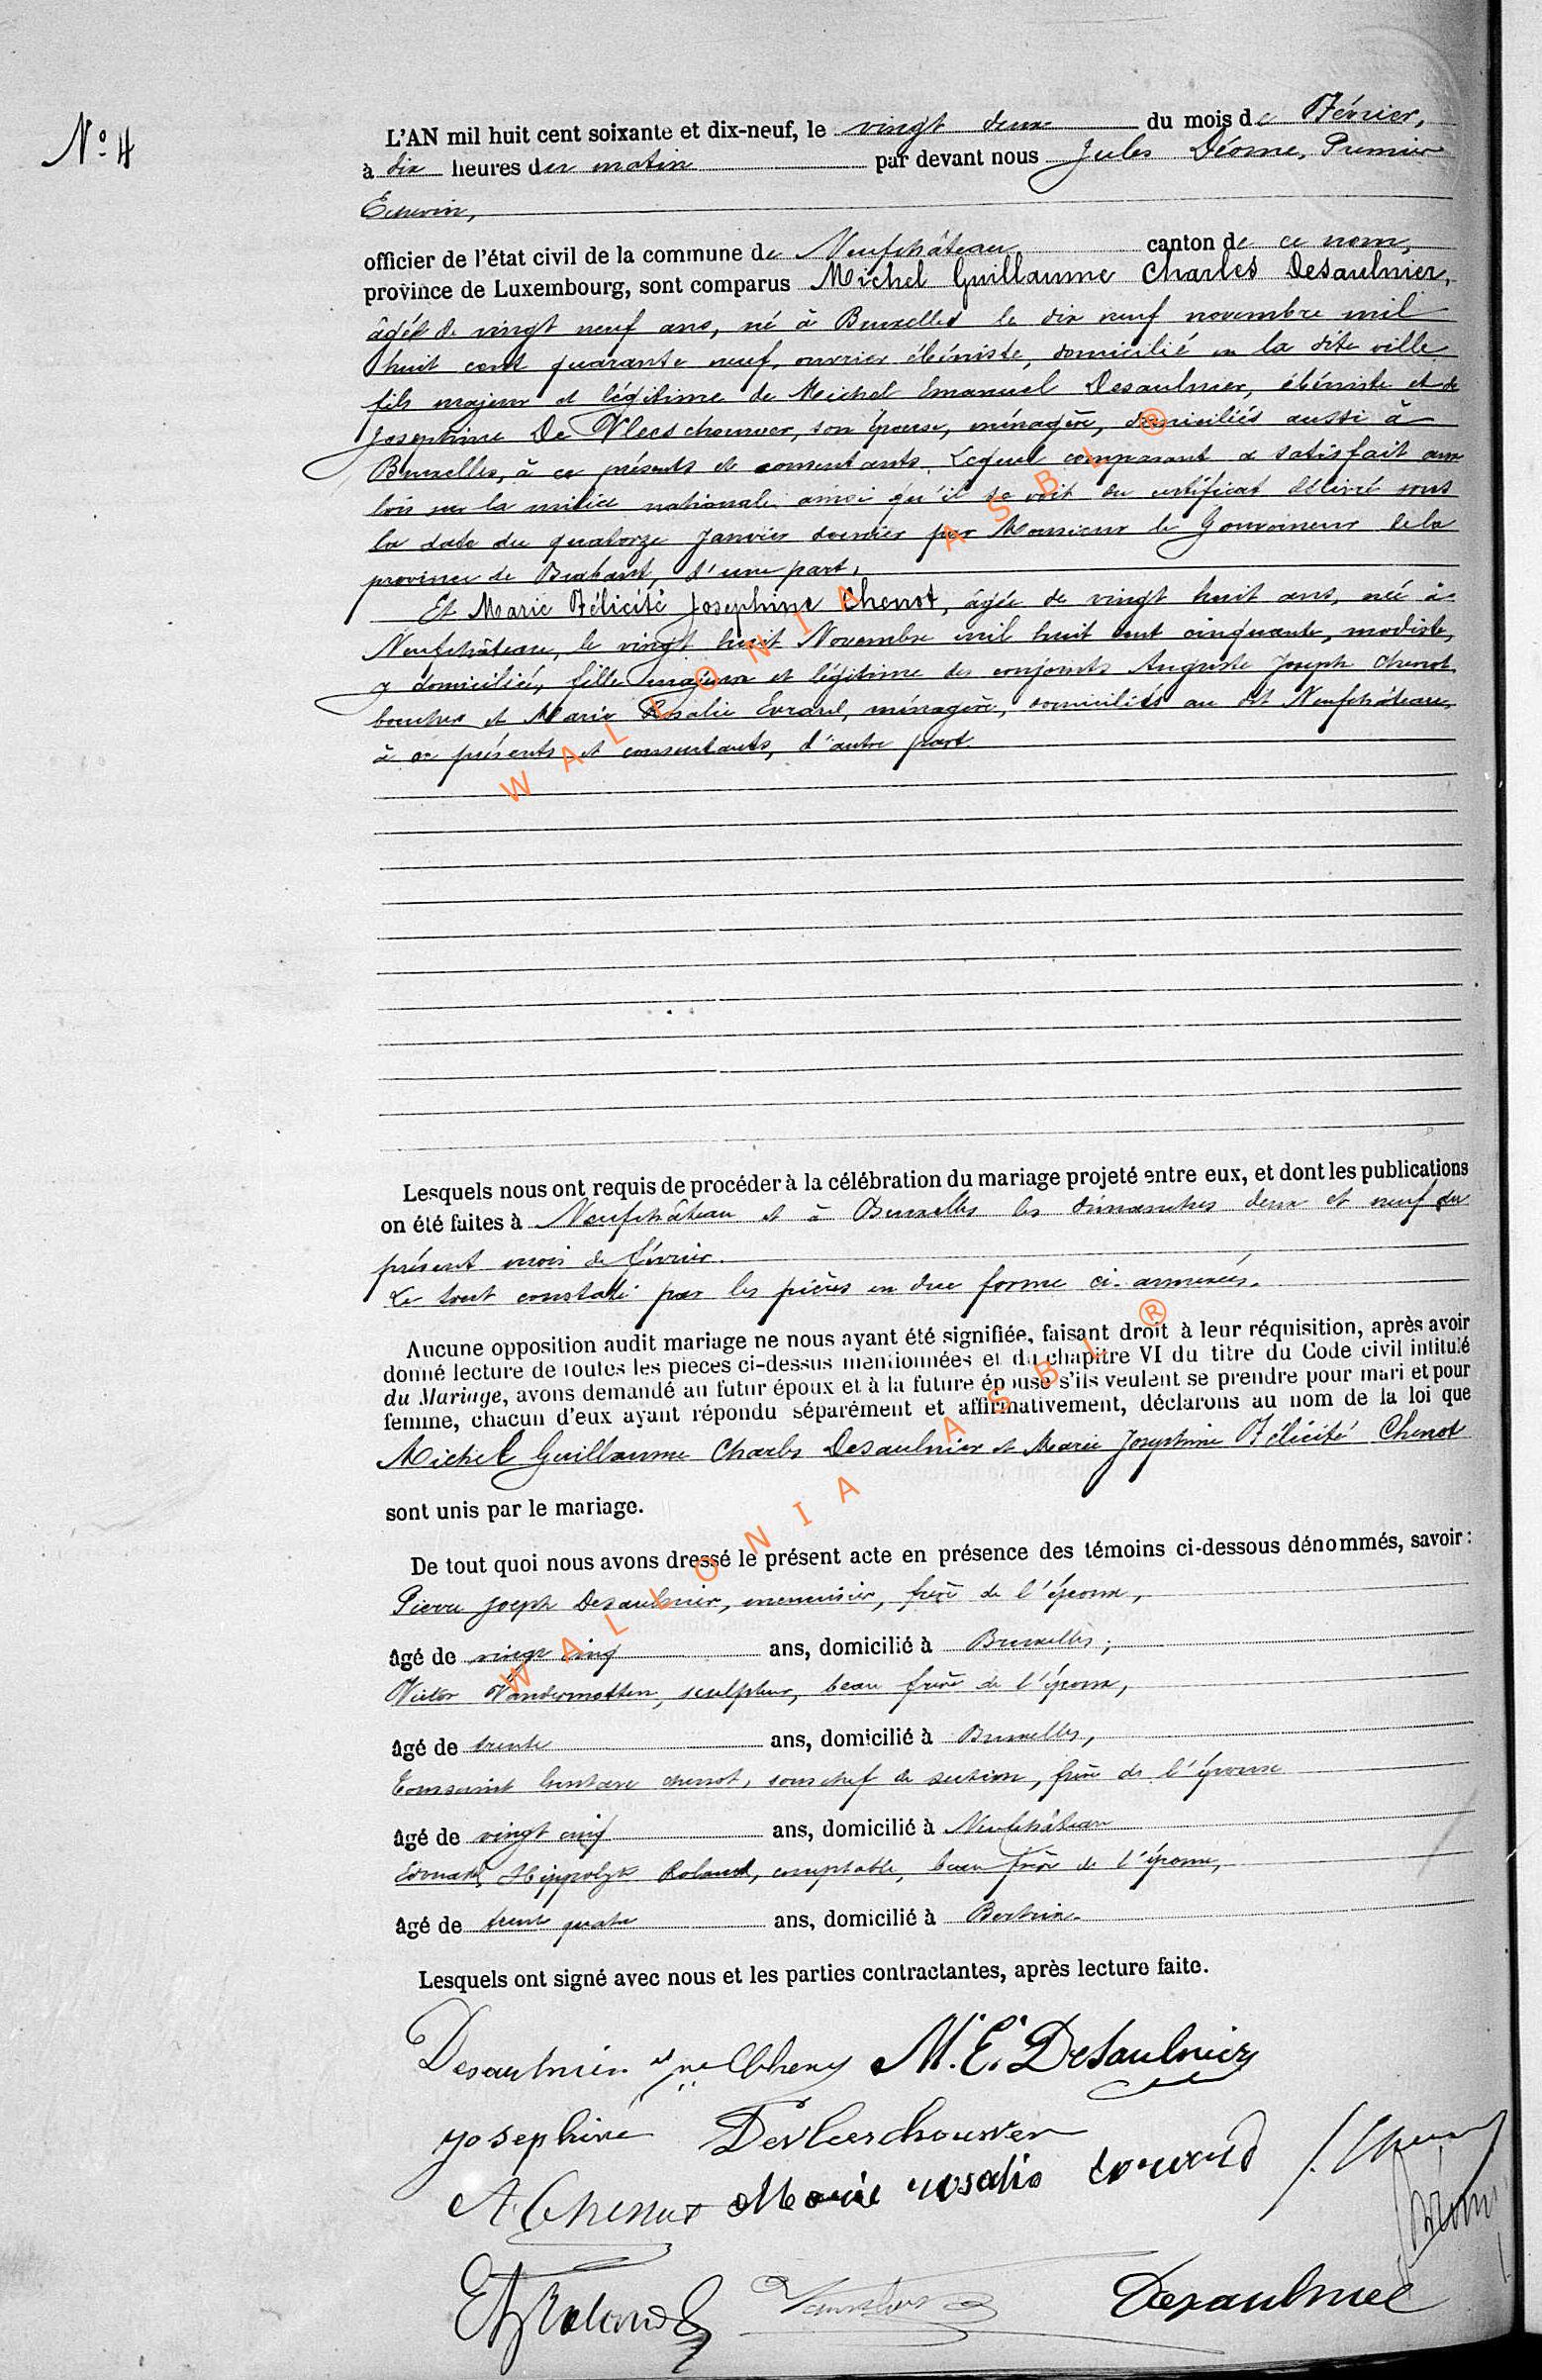 N° 4
L'AN mil huit cent soixante et dix-neuf, le vingt deux du mois de Février,
à dix heures du matin par devant nous Jules Déome, Premier
Echevin,
officier de l'état civil de la commune de Neufchâteau, canton de ce nom,
province de Luxembourg, sont comparus Michel Guillaume Charles Desaulnier,
âgé de vingt neuf ans, né à Bruxelles le dix neuf novembre mil
huit cent quarante neuf, ouvrier ébéniste, domicilié en la dite ville
fils majeur et légitime de Michel Emanuel Desaulnier, ébéniste et de
Josephine De Vleeschouwer, son épouse, ménagère, domiciliés aussi à
Bruxelles, à ce présents et consentants. Lequel comparant a satisfait aux
lois sur la milice nationale ainsi qu'il se voit du certificat délivré sous
la date du quatorze Janvier dernier par Monsieur le Gouverneur de la
province de Brabant, d'une part,
Et Marie Félicité Josephine Chenot, âgée de vingt huit ans, née à
Neufchâteau, le vingt huit Novembre mil huit cent cinquante, modiste,
y domicilié, fille majeure et légitime des conjoints Auguste Joseph Chenot
boucher et Marie Rosalie Evrard, ménagère, domiciliés au dit Neufchâteau,
à ce présents et consentants, d'autre part.
Lesquels nous ont requis de procéder à la célébration du mariage projeté entre eux, et dont les publications
on été faites à Neufchâteau et à Bruxelles les dimanches deux et neuf du
présent mois de février.
Le tout constaté par les pièces en due forme ci-annexées.
Aucune opposition audit mariage ne nous ayant été signifiée, faisant droit à leur réquisition, après avoir
donné lecture de toutes les pièces ci-dessus mentionnées et du chapitre VI du titre du Code civil intitulé
du Mariage, avons demandé au futur époux et à la future épouse s'ils veulent se prendre pour mari et pour
femme, chacun d'eux ayant répondu séparément et affirmativement, déclarons au nom de la loi que
Michel Guillaume Charles Desaulnier et Marie Josephine Félicité Chenot
sont unis par le mariage.
De tout quoi nous avons dressé le présent acte en présence des témoins ci-dessous dénommés, savoir :
Pierre Joseph Desaulnier, menuisier, frère de l'époux,
âgé de vingt cinq ans, domicilié à Bruxelles,
Victor Vandermotten, sculpteur, beau frère de l'époux,
âgé de trente ans, domicilié à Bruxelles,
Toussaint Gustave Chenot, sous chef de section, frère de l'épouse
âgé de vingt cinq ans, domicilié à Neufchâteau
Edouard Hippolyte Roland, comptable, beau frère de l'épouse,
âgé de trente quatre ans, domicilié à Bertrix.
Lesquels ont signé avec nous et les parties contractantes, après lecture faite.
Desaulnier M. E. DeSaulnier
Josephine Devleeschouwer
A Chenot Marie rosalie Evrard
Desaulnier
WALLONIA ASBL ®
WALLONIA ASBL ®